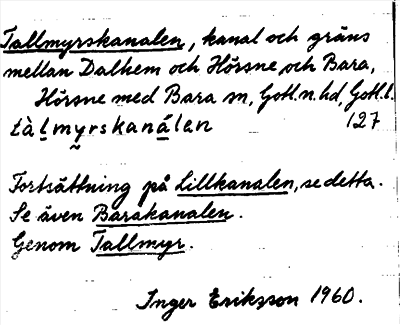 Tallmyrskanalen, kanal och gräns
mellan Dalhem och Hörsne och Bara,
Hörsne med Bara sn, Gotl. n. hd, Gotl. l.
tàlmyrskanálen 127
Fortsättning på Lillkanalen, se detta.
Se även Barakanalen.
Genom Tallmyr.
Inger Eriksson 1960.